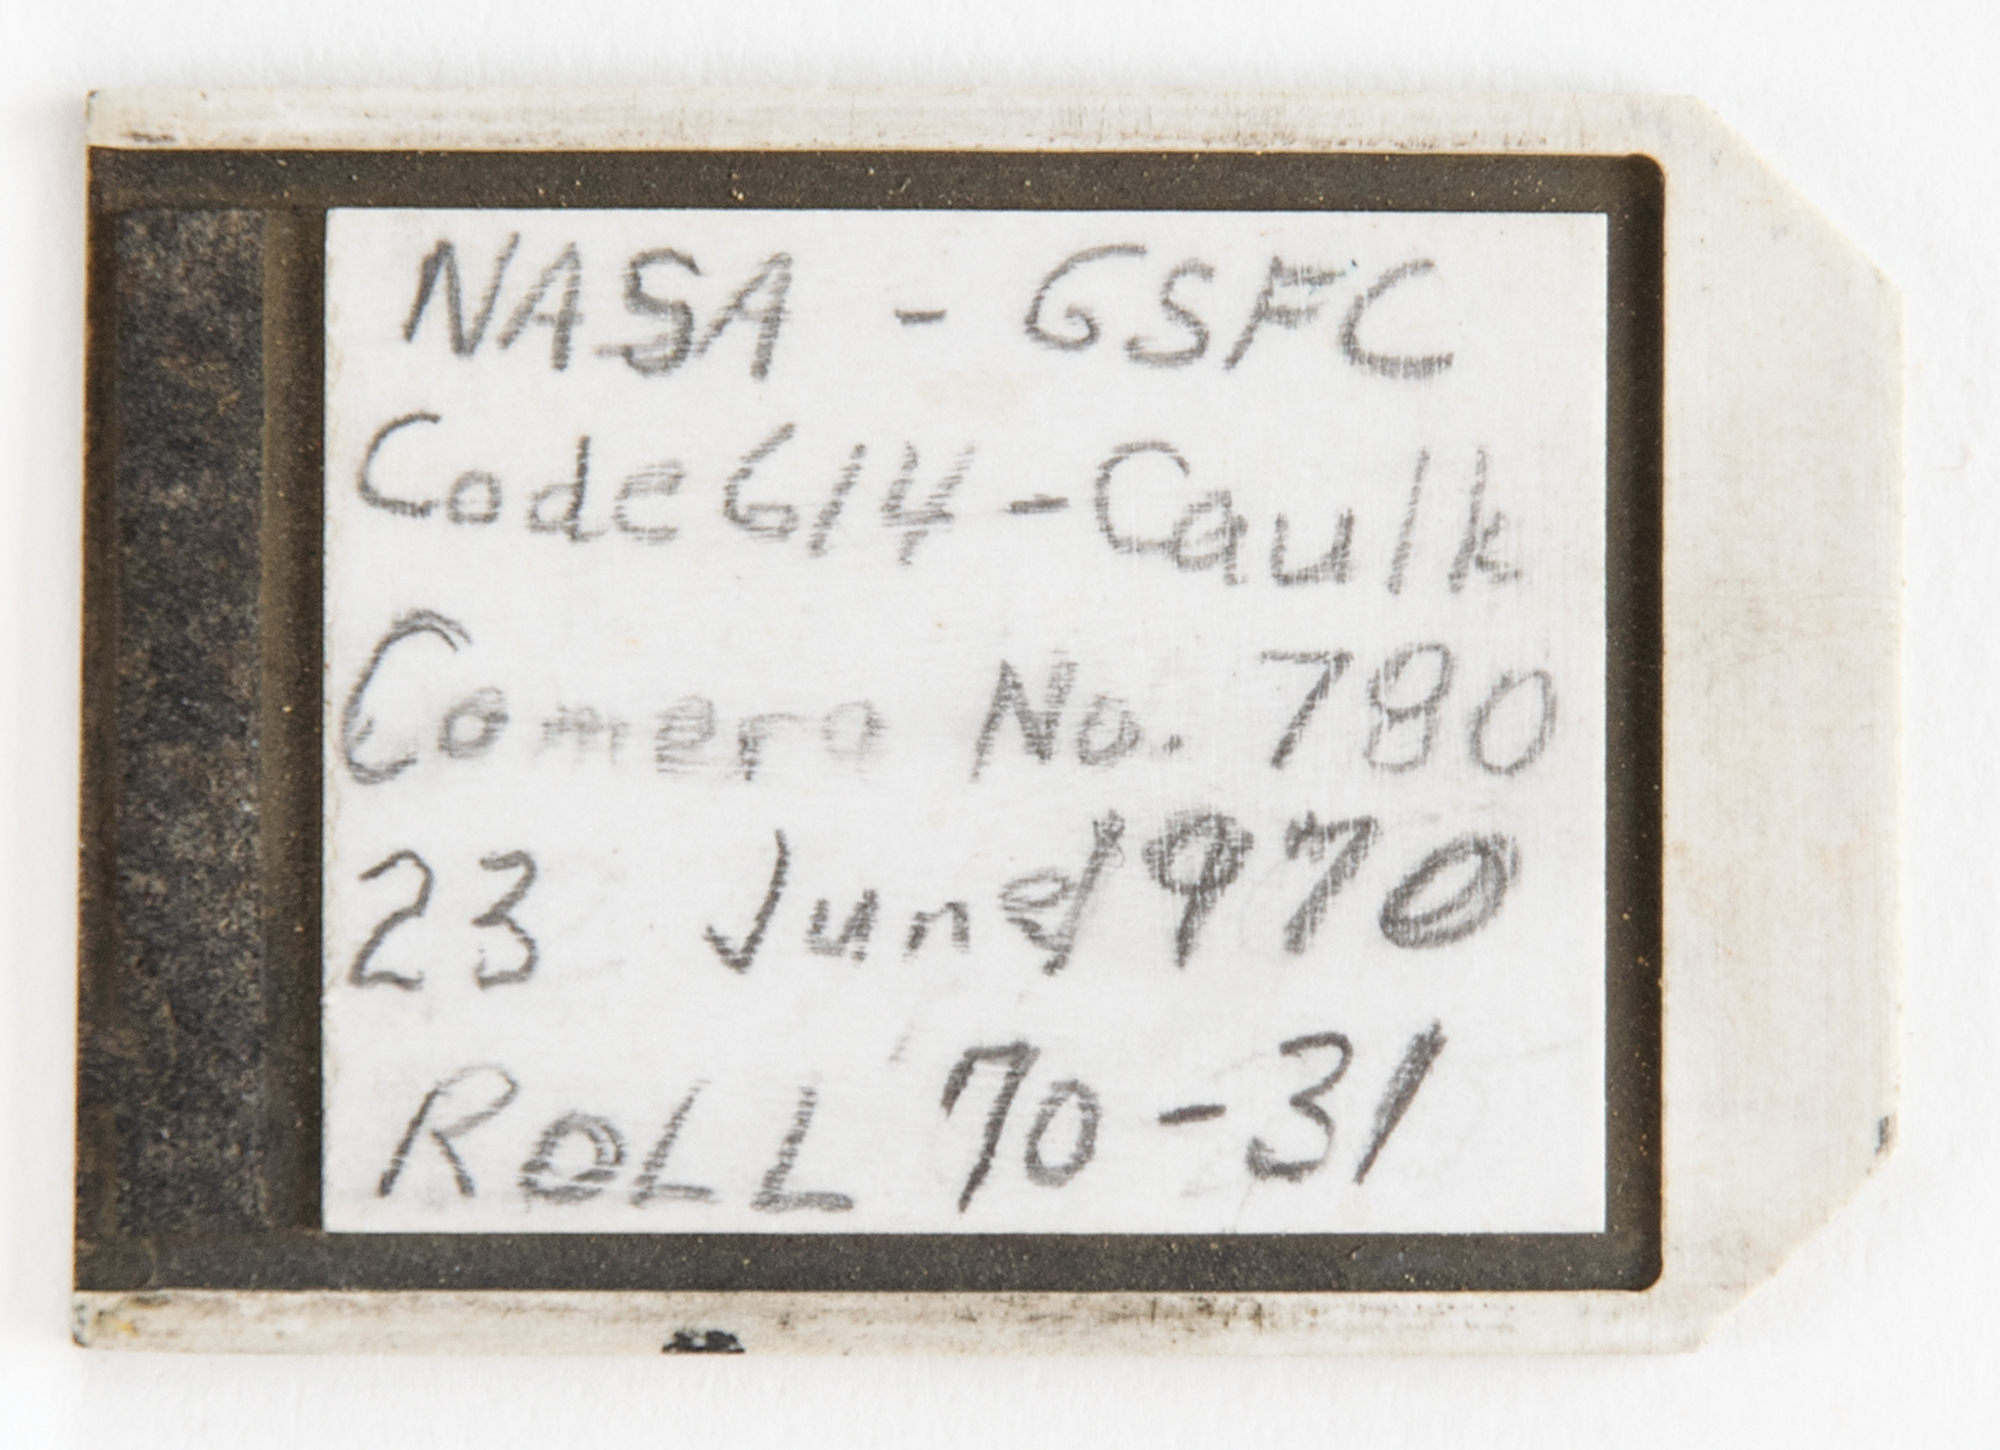 NASA - GSFC
Code 614 - Caulk
Camera No. 780
23 June 1970
ROLL 70-31